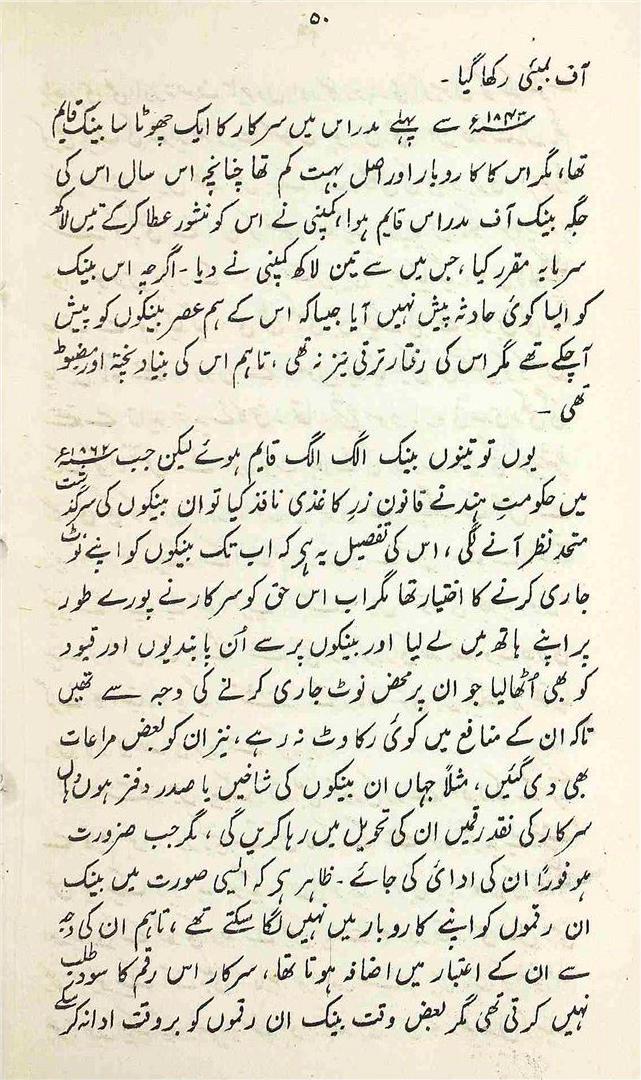 ۵۰
آف بمبئی رکھا گیا۔
۱۸۴۳ء سے پہلے مدراس میں سرکار کا ایک چھوٹا سا بینک قایم
تھا، مگر اس کا کاروبار اور اصل بہت کم تھا چنانچہ اس سال اس کی
جگہ بینک آف مدراس قایم ہوا، کمپنی نے اس کو منشور عطا کرکے تیس لاکھ
سرمایہ مقرر کیا، جس میں سے تین لاکھ کمپنی نے دیا۔ اگرچہ اس بینک
کو ایسا کوئی حادثہ پیش نہیں آیا جیسا کہ اس کے ہم عصر بینکوں کو پیش
آچکے تھے مگر اس کی رفتار ترقی تیز نہ تھی، تاہم اس کی بنیاد پختہ اور مضبوط
تھی۔
یوں تو تینوں بینک الگ الگ قایم ہوئے لیکن جب ۱۸۶۲ء
میں حکومتِ ہند نے قانون زرِ کاغذی نافذ کیا تو ان بینکوں کی سرگذشت
متحد نظر آنے لگی، اس کی تفصیل یہ ہی کہ اب تک بینکوں کو اپنے نوٹ
جاری کرنے کا اختیار تھا مگر اب اس حق کو سرکار نے پورے طور
پر اپنے ہاتھ میں لے لیا اور بینکوں پر سے اُن پابندیوں اور قیود
کو بھی اُٹھا لیا جو ان پر محض نوٹ جاری کرنے کی وجہ سے تھیں
تاکہ ان کے منافع میں کوئی رکاوٹ نہ رہے، نیز ان کو بعض مراعات
بھی دی گئیں، مثلاً جہاں ان بینکوں کی شاخیں یا صدر دفتر ہوں وہاں
سرکار کی نقد رقمیں ان کی تحویل میں رہا کریں گی، مگر جب ضرورت
ہو فوراً ان کی ادائی کی جائے۔ ظاہر ہی کہ ایسی صورت میں بینک
ان رقموں کو اپنے کاروبار میں نہیں لگا سکتے تھے، تاہم ان کی وجہ
سے ان کے اعتبار میں اضافہ ہوتا تھا، سرکار اس رقم کا سود طلب
نہیں کرتی تھی مگر بعض وقت بینک ان رقموں کو بروقت ادا نہ کرسکے